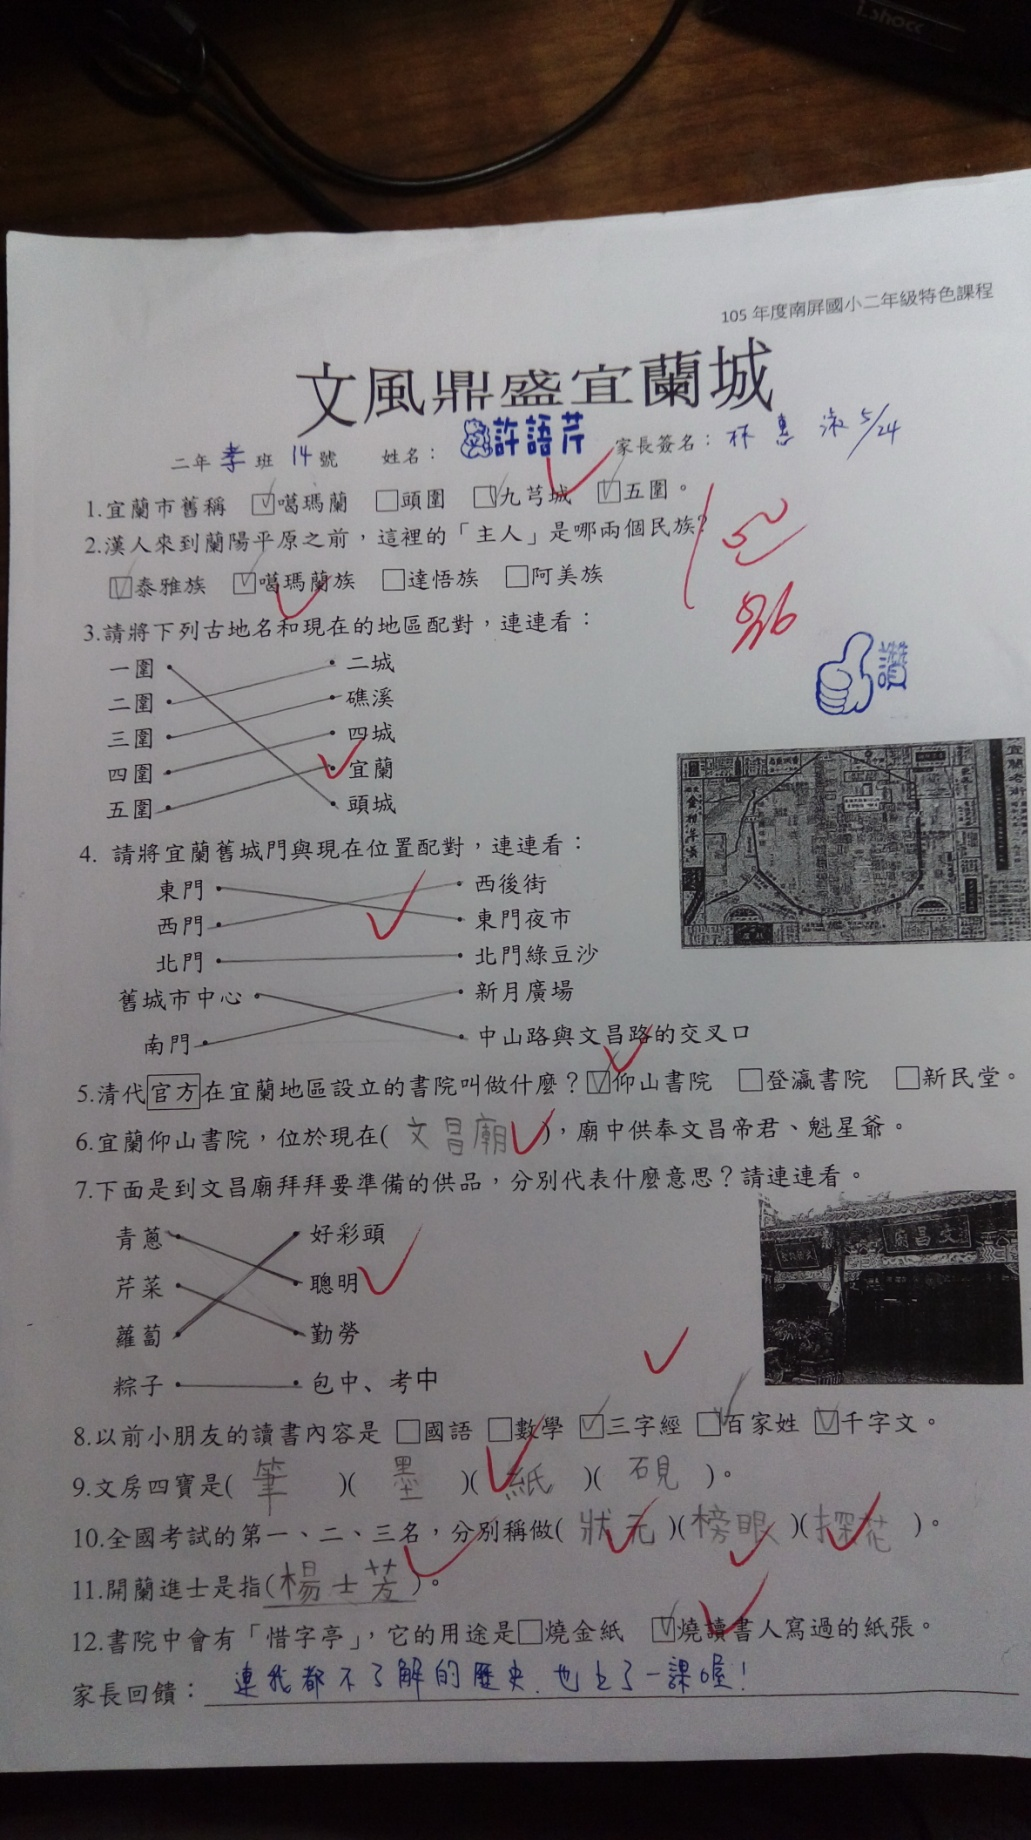 i.shock
105 年度南屏國小二年級特色課程
文風鼎盛宜蘭城
二年 孝 班 14 號 姓名： 許語芹 家長簽名： 林惠淑 5/24
1.宜蘭市舊稱 ☑噶瑪蘭 □頭圍 ☑九芎城 ☑五圍。
2.漢人來到蘭陽平原之前，這裡的「主人」是哪兩個民族?
☑泰雅族 ☑噶瑪蘭族 □達悟族 □阿美族
讚
3.請將下列古地名和現在的地區配對，連連看：
一圍 二城
二圍 礁溪
三圍 四城
四圍 宜蘭
五圍 頭城
4. 請將宜蘭舊城門與現在位置配對，連連看：
東門 西後街
西門 東門夜市
北門 北門綠豆沙
舊城市中心 新月廣場
南門 中山路與文昌路的交叉口
5.清代官方在宜蘭地區設立的書院叫做什麼？☑仰山書院 □登瀛書院 □新民堂。
6.宜蘭仰山書院，位於現在( 文昌廟 )，廟中供奉文昌帝君、魁星爺。
7.下面是到文昌廟拜拜要準備的供品，分別代表什麼意思？請連連看。
青蔥 好彩頭
芹菜 聰明
蘿蔔 勤勞
粽子 包中、考中
文昌廟
8.以前小朋友的讀書內容是 □國語 □數學 ☑三字經 ☑百家姓 ☑千字文。
9.文房四寶是( 筆 )( 墨 )( 紙 )( 硯 )。
10.全國考試的第一、二、三名，分別稱做( 狀元 )( 榜眼 )( 探花 )。
11.開蘭進士是指( 楊士芳 )。
12.書院中會有「惜字亭」，它的用途是□燒金紙 ☑燒讀書人寫過的紙張。
家長回饋： 連我都不了解的歷史，也上了一課喔！